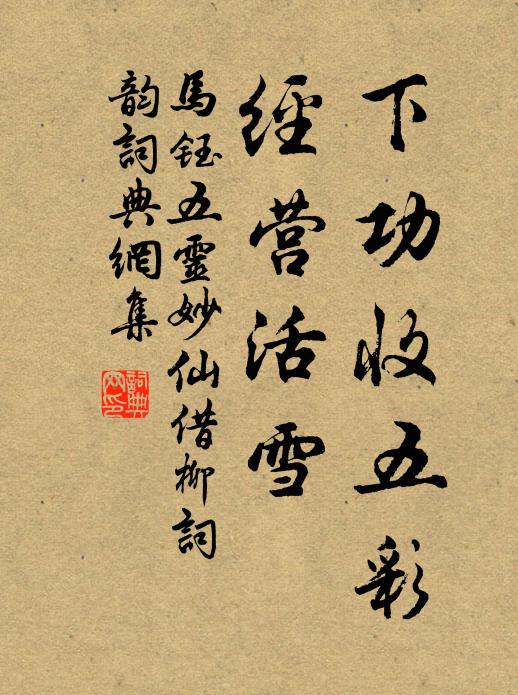 下功收五彩
經营活雪
馬鈺五靈妙仙借柳詞
韵詞典網集
詞典网印